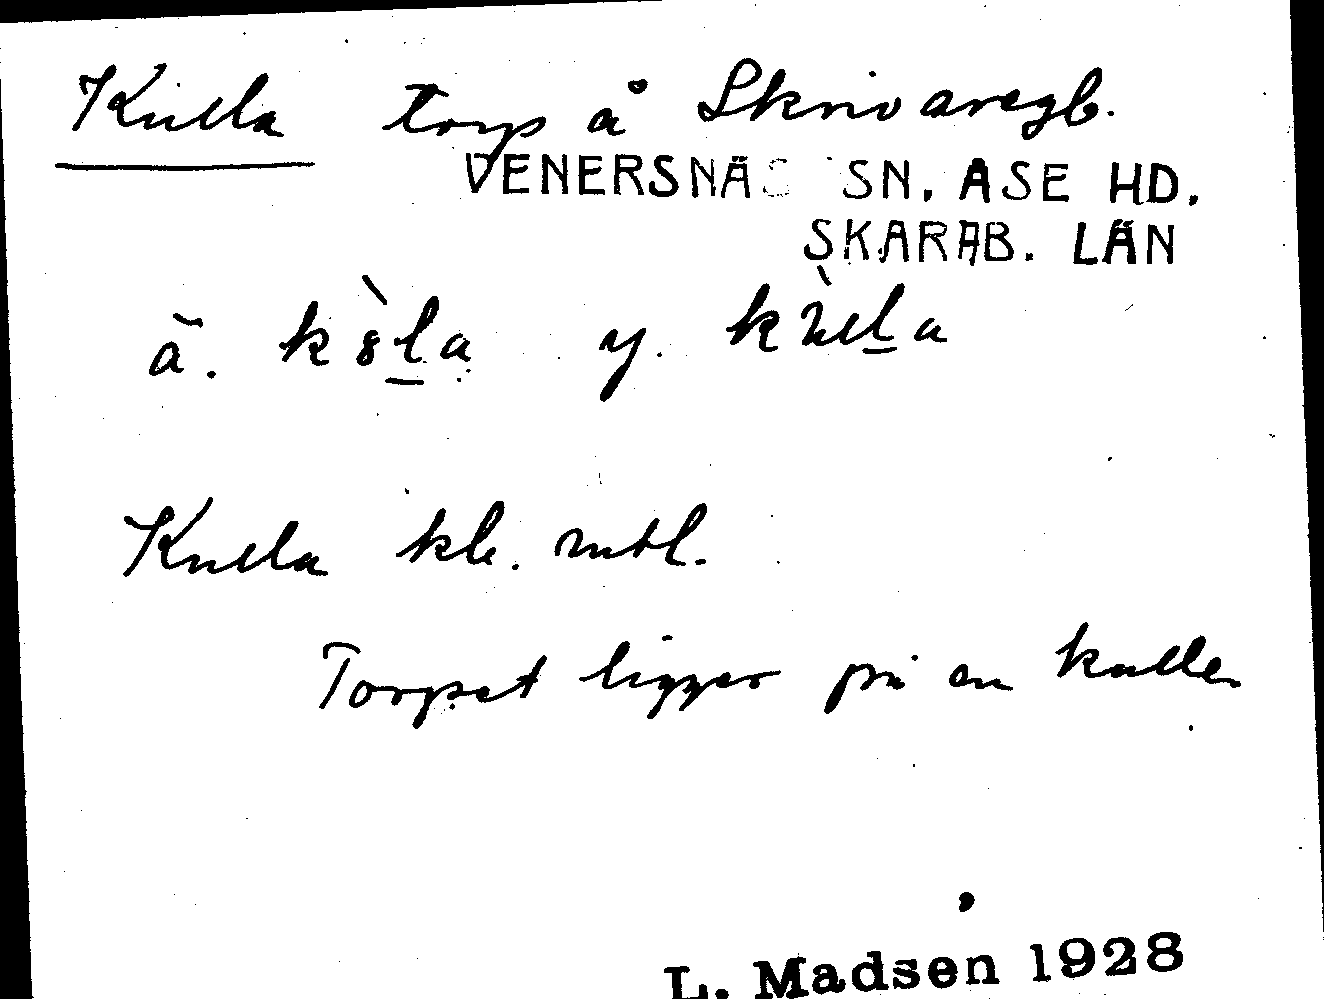 Kulla torp å Skrivaregb.
VENERSNÄS SN. ASE HD.
SKARAB. LÄN
ä. kòl̲a y. kùl̲a
Kulla kb. mtl.
Torpet ligger på en kulle.
L. Madsen 1928